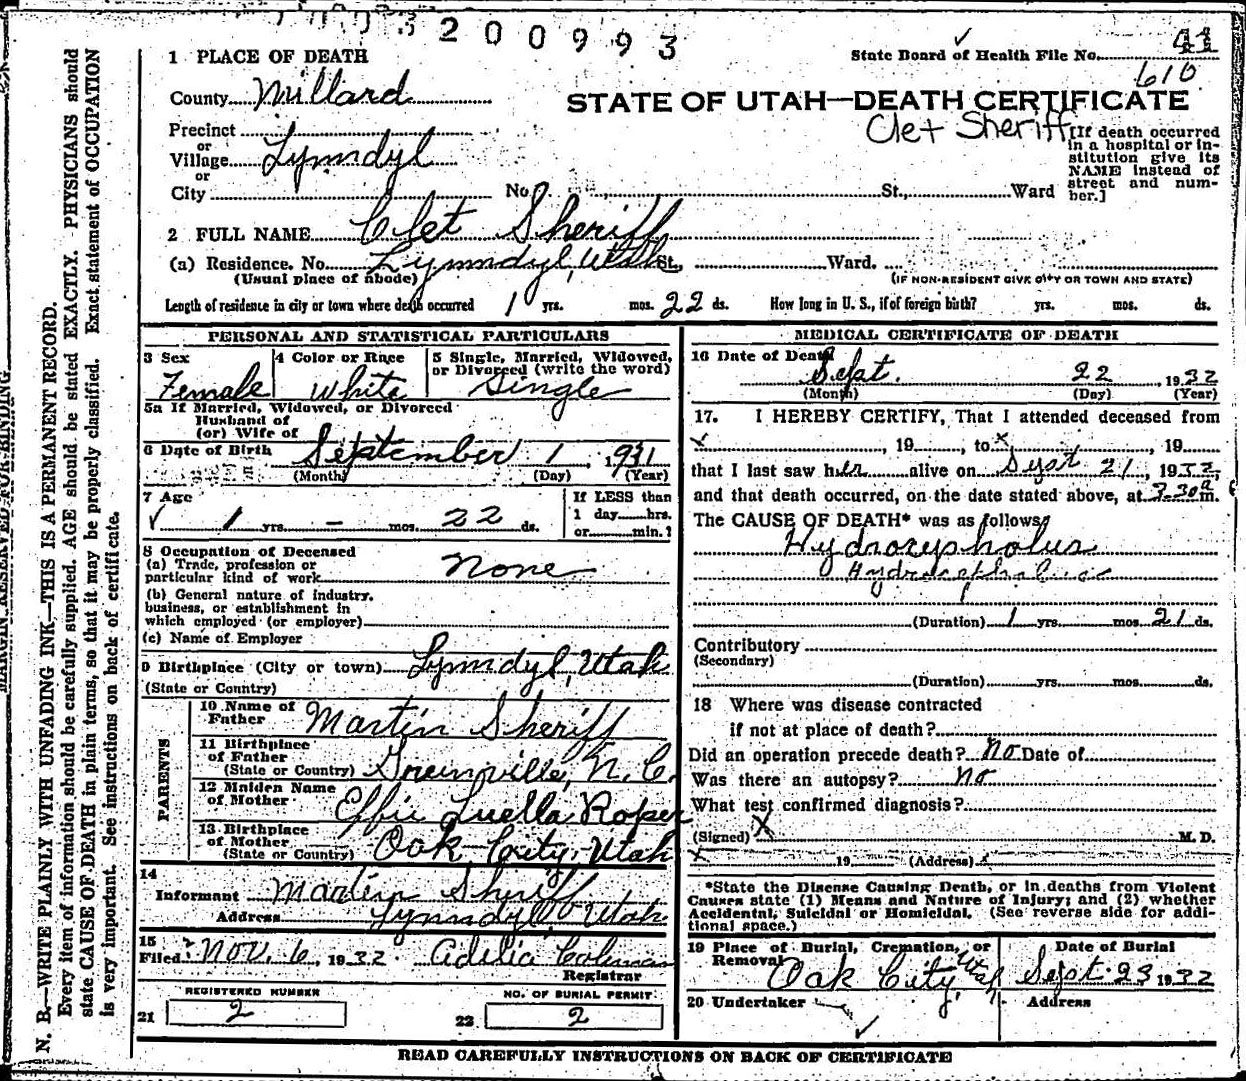 3200993
1 PLACE OF DEATH
State Board of Health File No. 41
610
County Millard
STATE OF UTAH—DEATH CERTIFICATE
Clet Sheriff
Precinct
or
Village Lynndyl
or
City No. St., Ward
[If death occurred
in a hospital or in-
stitution give its
NAME instead of
street and num-
ber.]
2 FULL NAME Clet Sheriff
(a) Residence. No. Lynndyl, Utah St. Ward.
(Usual place of abode) (IF NON-RESIDENT GIVE CITY OR TOWN AND STATE)
Length of residence in city or town where death occurred 1 yrs. mos. 22 ds. How long in U. S., if of foreign birth? yrs. mos. ds.
PERSONAL AND STATISTICAL PARTICULARS
3 Sex
Female
4 Color or Race
White
5 Single, Married, Widowed,
or Divorced (write the word)
Single
5a If Married, Widowed, or Divorced
Husband of
(or) Wife of
6 Date of Birth September 1, 1931
(Month) (Day) (Year)
7 Age
1 yrs. - mos. 22 ds.
If LESS than
1 day hrs.
or min.?
8 Occupation of Deceased
(a) Trade, profession or
particular kind of work None
(b) General nature of industry,
business, or establishment in
which employed (or employer)
(c) Name of Employer
9 Birthplace (City or town) Lynndyl, Utah
(State or Country)
PARENTS
10 Name of
Father Martin Sheriff
11 Birthplace
of Father
(State or Country) Greenville, N. C.
12 Maiden Name
of Mother Effie Luella Roper
13 Birthplace
of Mother
(State or Country) Oak City, Utah
14
Informant Martin Sheriff
Address Lynndyl, Utah
15
Filed Nov. 6, 1932. Adelia Coleman
Registrar
REGISTERED NUMBER
21 2
NO. OF BURIAL PERMIT
22 2
MEDICAL CERTIFICATE OF DEATH
16 Date of Death
Sept. 22, 1932
(Month) (Day) (Year)
17. I HEREBY CERTIFY, That I attended deceased from
x, 19, to x, 19
that I last saw her alive on Sept 21, 1932,
and that death occurred, on the date stated above, at 7.30 a m.
The CAUSE OF DEATH* was as follows:
Hydrocypholus
Hydrocephalus
(Duration) 1 yrs. mos. 21 ds.
Contributory
(Secondary)
(Duration) yrs. mos. ds.
18 Where was disease contracted
if not at place of death?
Did an operation precede death? No Date of
Was there an autopsy? no
What test confirmed diagnosis?
(Signed) X M. D.
x 19 (Address) x
*State the Disease Causing Death, or in deaths from Violent
Causes state (1) Means and Nature of Injury; and (2) whether
Accidental, Suicidal or Homicidal. (See reverse side for addi-
tional space.)
19 Place of Burial, Cremation, or
Removal Oak City, Utah
Date of Burial
Sept. 23 1932
20 Undertaker
Address
READ CAREFULLY INSTRUCTIONS ON BACK OF CERTIFICATE
MARGIN RESERVED FOR BINDING
N. B.—WRITE PLAINLY WITH UNFADING INK—THIS IS A PERMANENT RECORD.
Every item of information should be carefully supplied. AGE should be stated EXACTLY. PHYSICIANS should
state CAUSE OF DEATH in plain terms, so that it may be properly classified. Exact statement of OCCUPATION
is very important. See instructions on back of certificate.